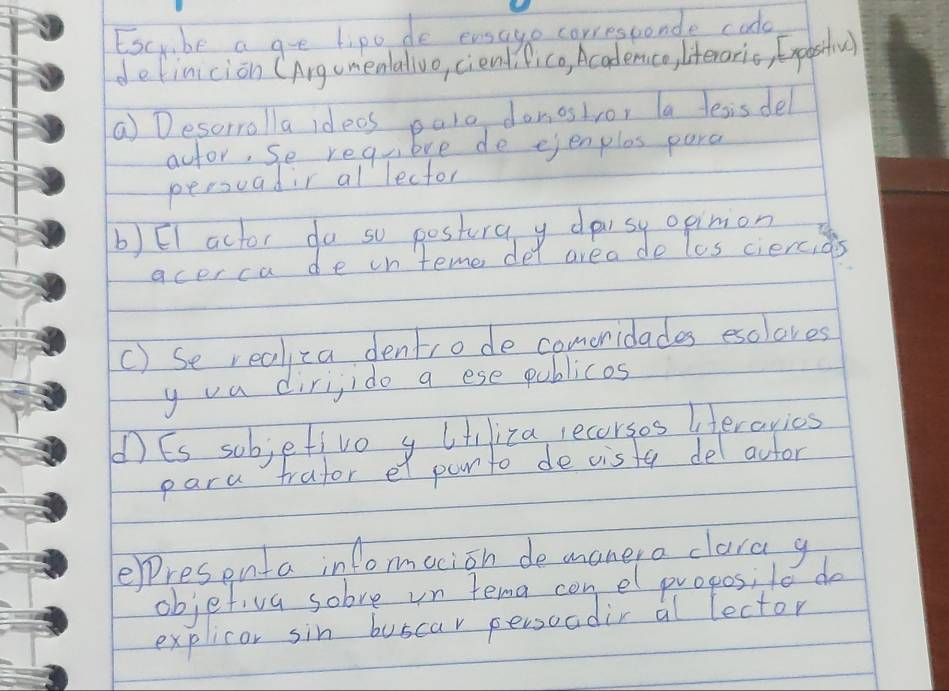 Escribe a que tipo de ensayo corresponde cada
definición (Argumentativo, cientifico, Academico, literario, Expositivo)
a) Desarrolla ideas para demostrar la tesis del
autor. Se requiere de ejemplos para
persuadir al lector
b) El actor da su postura y da su opinion
acerca de un tema del area de las ciencias
c) Se realiza dentro de comunidades escolares
y va dirijido a ese publicos
d) Es subjetivo y Utiliza recursos literarios
para tratar el punto de vista del autor
e) Presenta información de manera clara y
objetiva sobre un tema con el proposito de
explicar sin buscar persuadir al lector